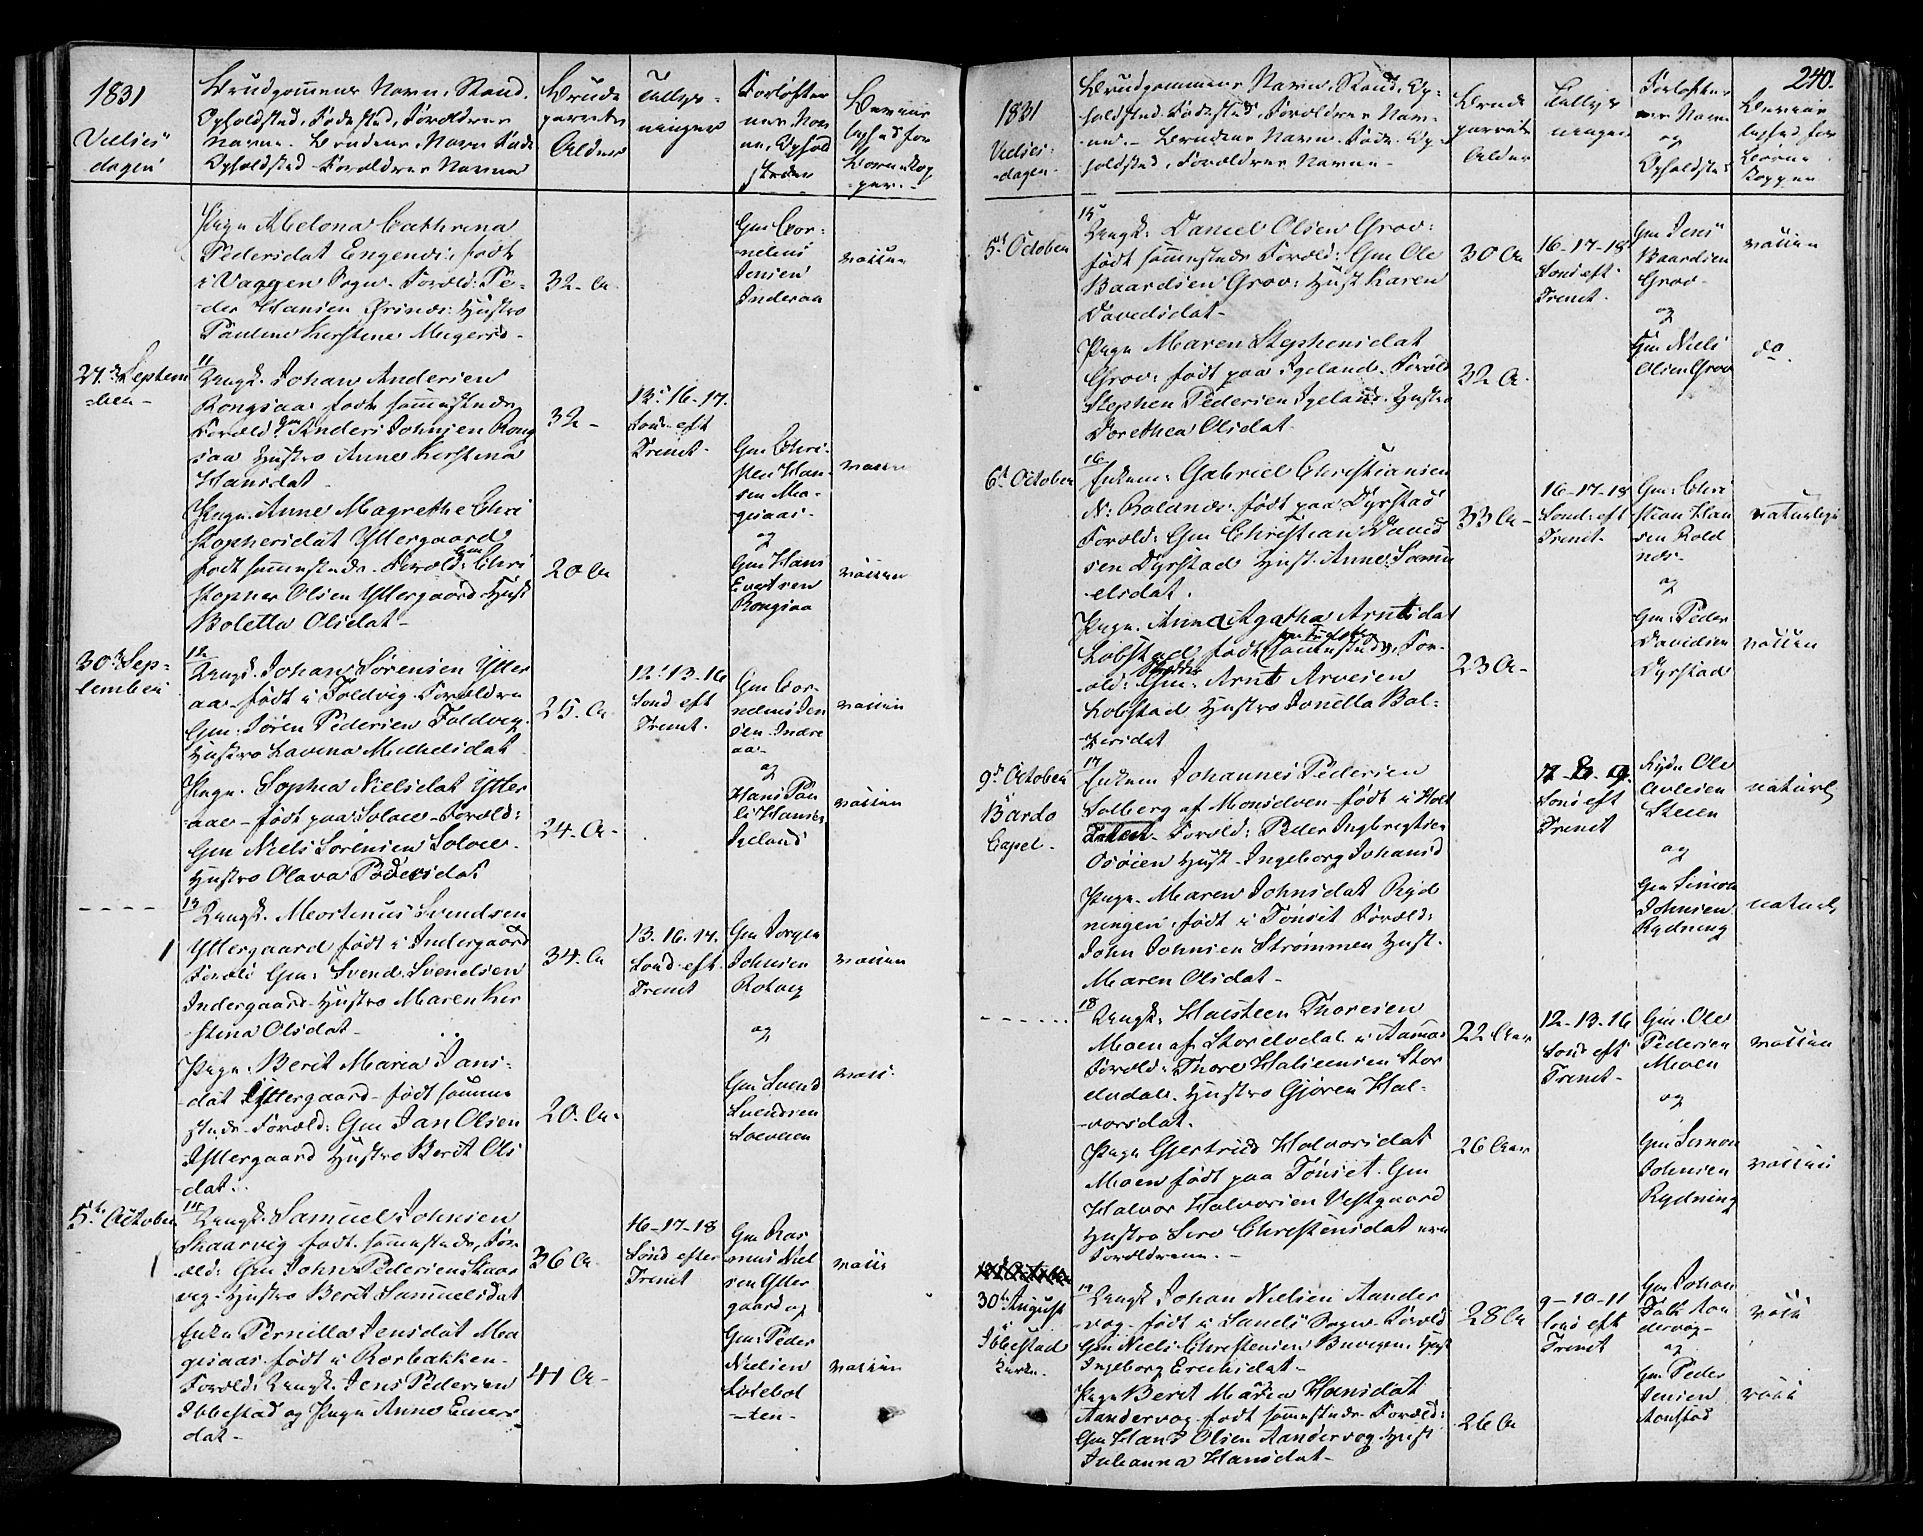 1831
Vielses
dagen
Brudgommens Navn, Stand,
Opholdsted, Fødested, Forældres
Navne. Brudens Navn Føde
Opholdsted Forældres Navne
Brude
parrets
Alder
Tillys-
ninger
Forlofter
nes Nav
ne, Ophold
steder
Bevis
lighed for
Børnekop
per.-
Pige Abelona Cathrina
Pedersdat Engenes, født
i Vaagen Sogn. Foræld: Pe-
der Hansen Hustro
Pauline Kirstine
32 Aar
Gm Cor-
nelius
Jensen
Inderaa
vaccin
27de Septem
-ber-
11
Ungk. Johan Andersen
Rongsaa født sammesteds
Foræld: Gm Anders Johnsen Rong
saa Hustro Anne Kirstina
Hansdat-
32 -
13. 16-17.
Sond eft
Trenit-
Gm Chri-
sten Han-
sen Mea-
gesaas-
og
vaccin
Pige. Anne Magrethe Chri
stophersdat Yttergaard
født sammesteds. Foræld: Gm Chri
stopher Olsen Yttergaard Hust
Boletta Olsdat-
20 Aa
Gm Hans
Evertsen
Rongsaa
vaccin
30te Sep-
tember
12
Ungk. Johan Sørensen Ytter
aa- født i Foldvig Forældre
Gm. Søren Pedersen Foldvig.
Hustro Lavina Michelsdat
25. Aa.
12. 13. 16
Sond eft
Trenit.
Gm Cor-
nelius Jen
sen Indre
aa-
og
vaccin
Pige. Sophia Nielsdat Ytter
aae- født paa Foræld:
Gm Niels Sørensen
Hustro Olava Pedersdat
24. Aa-
Hans Pau
li Hansen
Igeland
vaccin
- - - - -
13
Ungk. Mortinus Svendsen
Yttergaard født i Indergaard
Foræld Gm: Svend Svendsen
Indergaard Hustro Maren Kir
stina Olsdat-
34. Aa
13. 16. 17.
Sond. eft.
Trenit
Gm Jørgen
Johnsen
Rotvig
og
vaccin
Pige. Berit Maria Jans-
dat Yttergaard- født samme
steds. Foræld: Gm Jan Olsen
Yttergaard Hustro Berit Ols
dat.
20. Aa.
Gm Svend
Svendsen
vacci.
5te October
14
Ungk. Samuel Johnsen
Skaarvig født sammesteds, For-
æld: Gm John Pedersen Skaar
vig. Hustro Berit Samuelsdat
36 Aa
16-17-18
Sond efter
Trenit
Gm Ras
mus Niel
sen Ytter
gaard og
vacci
Enke Pernilla Jensdat Mea
gesaas. født i Rorbakken-
Foræld: Ungk. Jens Pedersen
Ibbestad og Pige Anne Einers
dat-
41 Aa-
Gm: Peder
Nielsen
-ten-
vaccin
240.
1831
Vielses-
-dagen-
Brudgommens Navn, Stand, Op-
holdsted, Fødested, Forældres Nav-
ne.- Brudens Navn. Føde. Op-
holdsted, Forældres Navne-
Brude
parrets
Alder
Tillys
ninger
Forlofter
nes Navne
og
Opholdsted
Bevis
lighed for
Børne
Kopper
5te October
15
Ungk: Daniel Olsen Grov:
født sammesteds Foræld: Gm Ole
Baardsen Grov: Hust Karen
Davidsdat-
30 Aa
16-17-18
Sond eft:
Trenit.
Gm Jens
Baardsen
Grov-
og
vaccin
Pige Maren Stephensdat
Grov: født paa Igeland. Foræld
Stephen Pedersen Igeland. Hustro
Dorethea Olsdat
32 A.
Gm Niels
Olsen Grov
do.
6te October
16
Enkem: Gabriel Christiansen
N: Roldnes. født paa Dyrstad
Foræld: Gm Christian David
sen Dyrstad Hust. Anne Samu
elsdat.
33 Aa-
16-17-18
Sond: eft
Trenit-
Gm: Chri
stian Han
sen Rold
nes-
og
naturlige
Pige. Anne Agatha Arntsdat
Lobstad født sammesteds, For-
æld: Gm: Arnt Arvesen
Lobstad Hustro Jonella Bal-
-zersdat
23 A-
Gm: Peder
Davidsen
Dyrstad
vaccin
9de October
i Bardo
Capel-
17
Enkem Johannes Pedersen
Solberg af født i Holt
Foræld: Peder Ingbregtsen
Hust- Ingeborg Johansd
17 8. 9.
Sond eft
Trenit
Ole
Steien
og
naturl
Pige. Maren Johnsdat Ryd
ningen, født i Tønset Foræld:
John Johnsen Strømmen Hust.
Maren Olsdat-
Gm Simon
Johnsen
Rydning
naturl
- - - - -
18
Ungk: Halsteen Thoresen
Moen af Storelvdal i Aamot
Foræld: Thore Halsteensen Stor
elvdal. Hustro Gjøren Hal-
-vorsdat.
22 Aar
12-13-16
Sond eft
Trenit-
Gm. Ole
Pedersen
Moen
og
vaccin
Pige Gjertrud Halvorsdat
Moen født paa Tønset. Gm
Halvor Halvorsen Vestgaard
Hustro Siro Christensdat ere
Forældrene.-
26 Aar
Gm Simon
Johnsen
Rydning
vaccin
30te August
i
Ibbestad
Kirke.
19
Ungk Johan Nielsen Aander
vog- født i Sands Sogn- Foræld
Gm Niels Christensen Hust
Ingeborg Erichsdat-
28 Aa
9-10-11
Sond eft
Trenit
Gm Johan
Falk Aan
dervog-
og
vacci
Pige Berit Maria Hansdat
Aandervog født sammesteds. Foræld:
Gm Hans Olsen Aandervog. Hust
Julianna Hansdat-
26 Aa
Gm Peder
Jensen
Aanstad
vacci